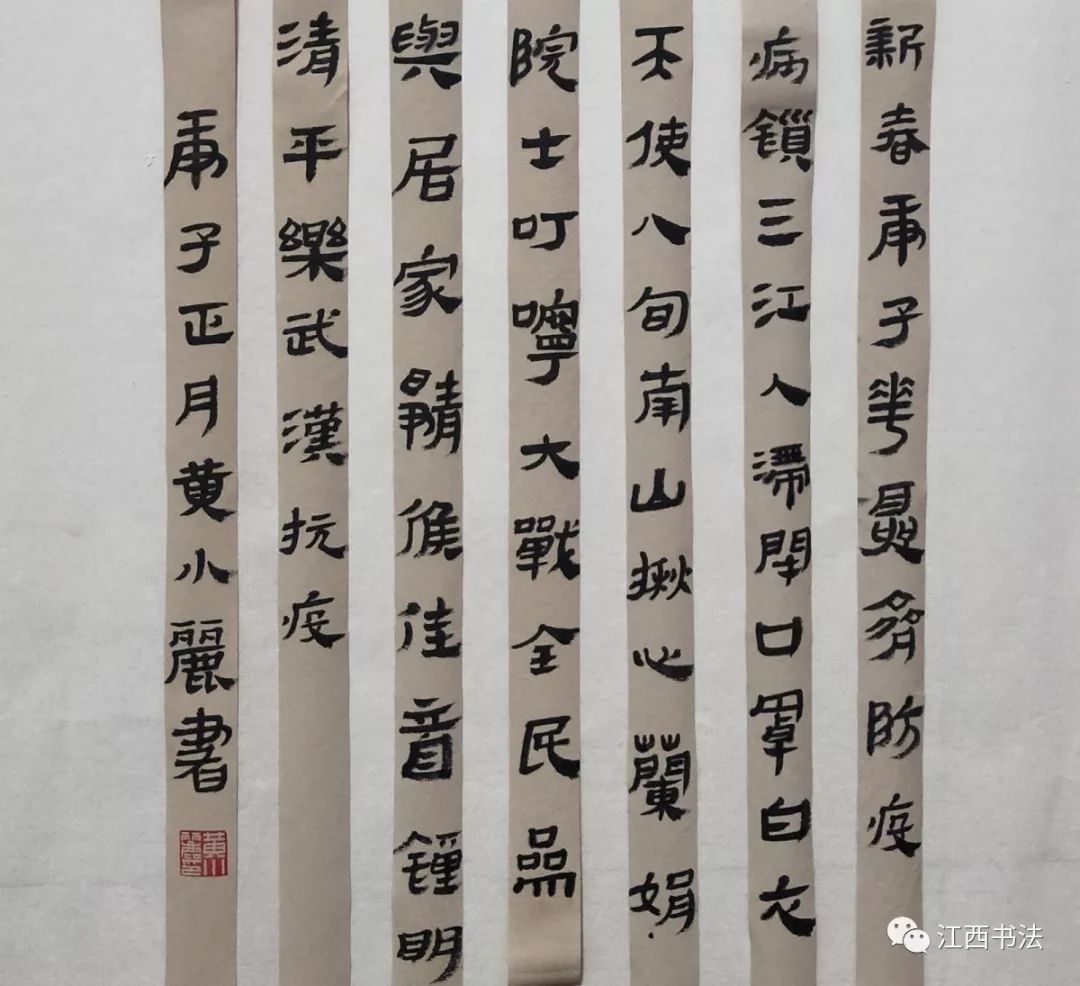 新春庚子華夏齊防疫
病鎖三江人滯閉口罩白衣
天使八旬南山揪心蘭娟
院士叮嚀大戰全民參
與居家靜候佳音鍾明
清平樂武漢抗疫
庚子正月黃小麗書
江西书法